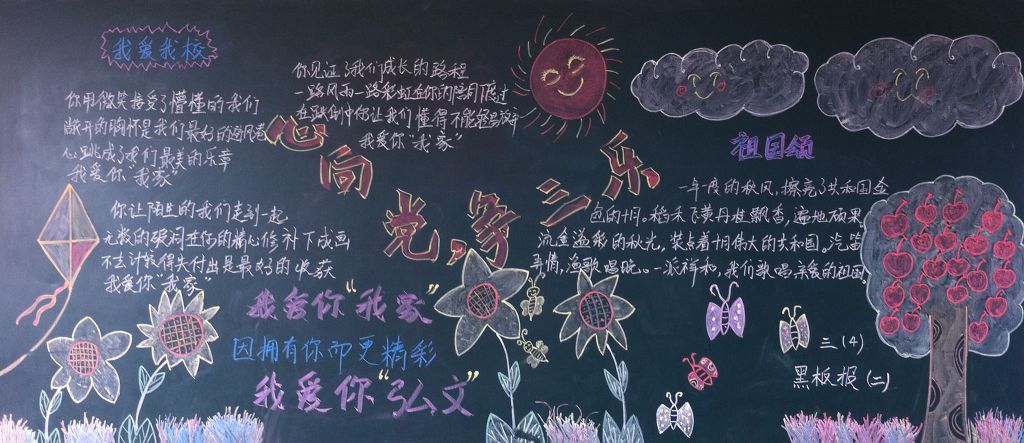 我爱我校
你用微笑接受了懵懂的我们
敞开的胸怀是我们最好的避风港
心跳成了我们最美的乐章
我爱你“我家”
你让陌生的我们走到一起
无数的疑问在你的精心修补下成画
不去计较得失付出是最好的收获
我爱你“我家”
你见证了我们成长的路程
一路风雨一路彩虹在你的
在跌倒中你让我们懂得不能轻易放弃
我爱你“我家”
心向党,争三乐
我爱你“我家”
因拥有你而更精彩
我爱你“弘文”
祖国颂
一年一度的秋风,擦亮了共和国金
色的十月。稻禾飞黄丹桂飘香,遍地硕果
流金溢彩的秋光,装点着十月伟大的共和国。汽笛
声情,渔歌唱晚。一派祥和,我们歌唱亲爱的祖国
三(4)
黑板报(二)